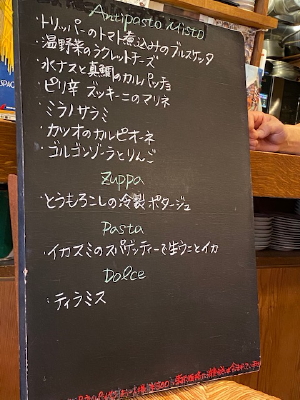 Antipasto Misto
・トリッパーのトマト煮込みのブルスケッタ
・温野菜のラクレットチーズ
・水ナスと真鯛のカルパッチョ
・ピリ辛 ズッキーニのマリネ
・ミラノサラミ
・カツオのカルピオーネ
・ゴルゴンゾーラとりんご
Zuppa
・とうもろこしの冷製ポタージュ
Pasta
・イカスミのスパゲッティーで生うにとイカ
Dolce
・ティラミス